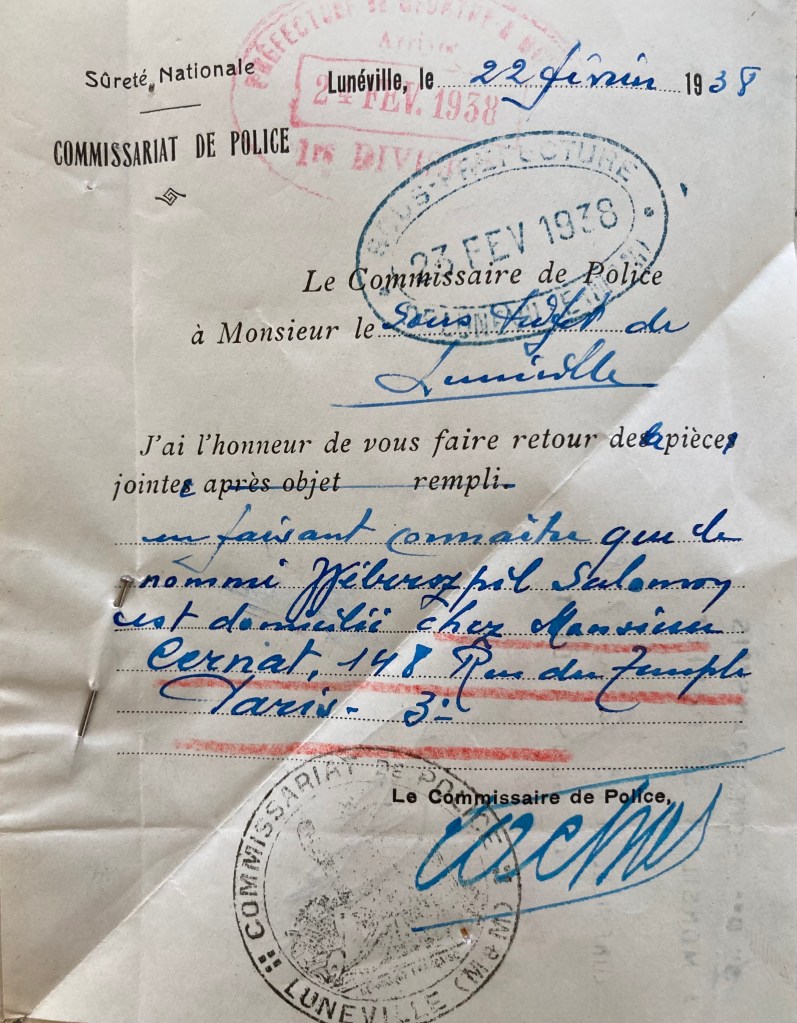 PRÉFECTURE DE MEURTHE-&-M
Arrivée
24 FEV. 1938
1re DIVIS
Sûreté Nationale
Lunéville, le 22 février 1938
COMMISSARIAT DE POLICE
SOUS-PRÉFECTURE
23 FEV 1938
DE LUNÉVILLE
Le Commissaire de Police
à Monsieur le Sous Préfet de
Lunéville
J'ai l'honneur de vous faire retour de la pièce
jointe après objet rempli.
en faisant connaître que le
nommé Wéberszpil Salomon
est domicilié chez Monsieur
Cerniat, 148 Rue du Temple
Paris - 3e
Le Commissaire de Police,
COMMISSARIAT DE POLICE
LUNEVILLE (M&M)